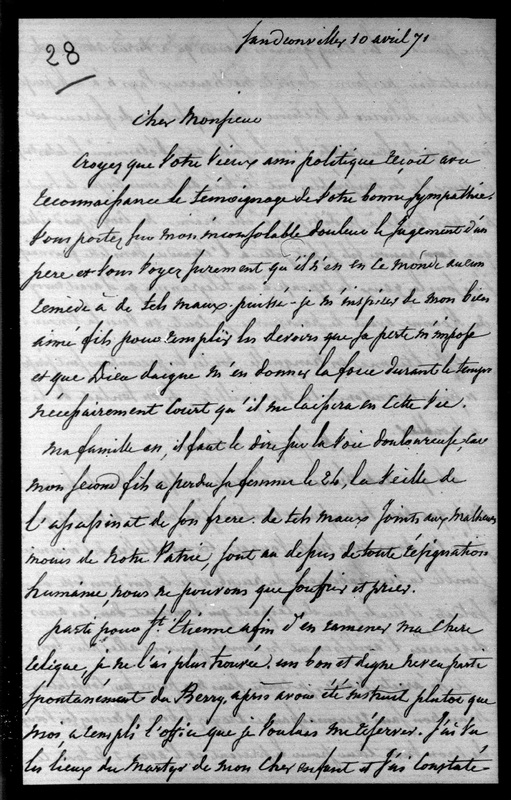 28
Sandionville 10 avril 71
Cher Monsieur
Croyez que votre vieux ami politique reçoit avec
reconnaissance le témoignage de votre bonne sympathie.
vous portez sur mon inconsolable douleur le jugement d'un
pere et vous voyez surement qu'il n'en en ce monde aucun
remède à de tels maux. puissé-je m'inspirer de mon bien
aimé fils pour remplir les devoirs que sa perte m'impose
et que Dieu daigne m'en donner la force durant le temps
nécessairement court qu'il me laissera en cette vie.
ma famille en, il faut le dire sur la voie douloureuse, car
mon second fils a perdu sa femme le 24, la veille de
l'assassinat de son frere. de tels maux joints aux malheurs
inouis de notre Patrie, sont au dessus de toute résignation
humaine, nous ne pouvons que souffrir et prier.
parti pour St. Etienne afin d'en ramener ma chere
relique, je ne l'ai plus trouvée, un bon et digne neveu parti
spontanément du Berry, après avoir été instruit plutot que
moi, a rempli l'office que je voulais me réserver. J'ai vu
les lieux du martyr de mon cher enfant et j'ai constaté